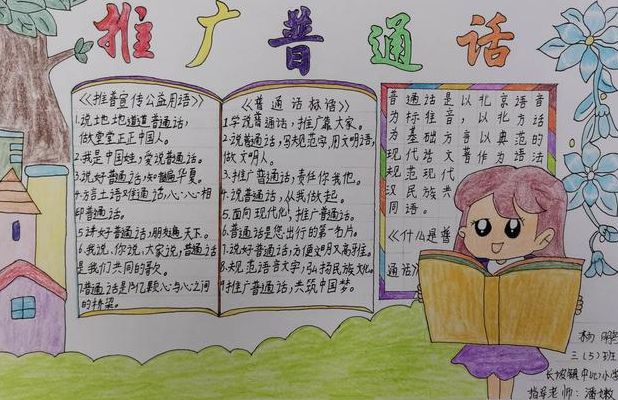 推广普通话
《推普宣传公益用语》
1.说地地道道普通话,
做堂堂正正中国人。
2.我是中国娃,爱说普通话。
3.说好普通话,知音遍华夏。
4.方言土语难通话,心心相
印普通话。
5.讲好普通话,朋友遍天下。
6.我说、你说、大家说,普通话
是我们共同的歌。
7.普通话是13亿颗心与心之间
的桥梁。
《普通话标语》
1.学说普通话,推广靠大家。
2.说普通话,写规范字,用文明语,
做文明人。
3.推广普通话,责任你我他。
4.说普通话,从我做起。
5.面向现代化,推广普通话。
6.普通话是您出行的第一名片。
7.说好普通话,方便文明又高雅。
8.规范语言文字,弘扬民族文化。
9.推广普通话,共筑中国梦。
普通话是以北京语音
为标准音,以北方话
为基础方言以典范的
现代话文著作为语法
规范现代
汉民族共
同语。
《什么是普
通话》
杨
三(5)班
长坡镇中心小学
指导老师:潘嫩